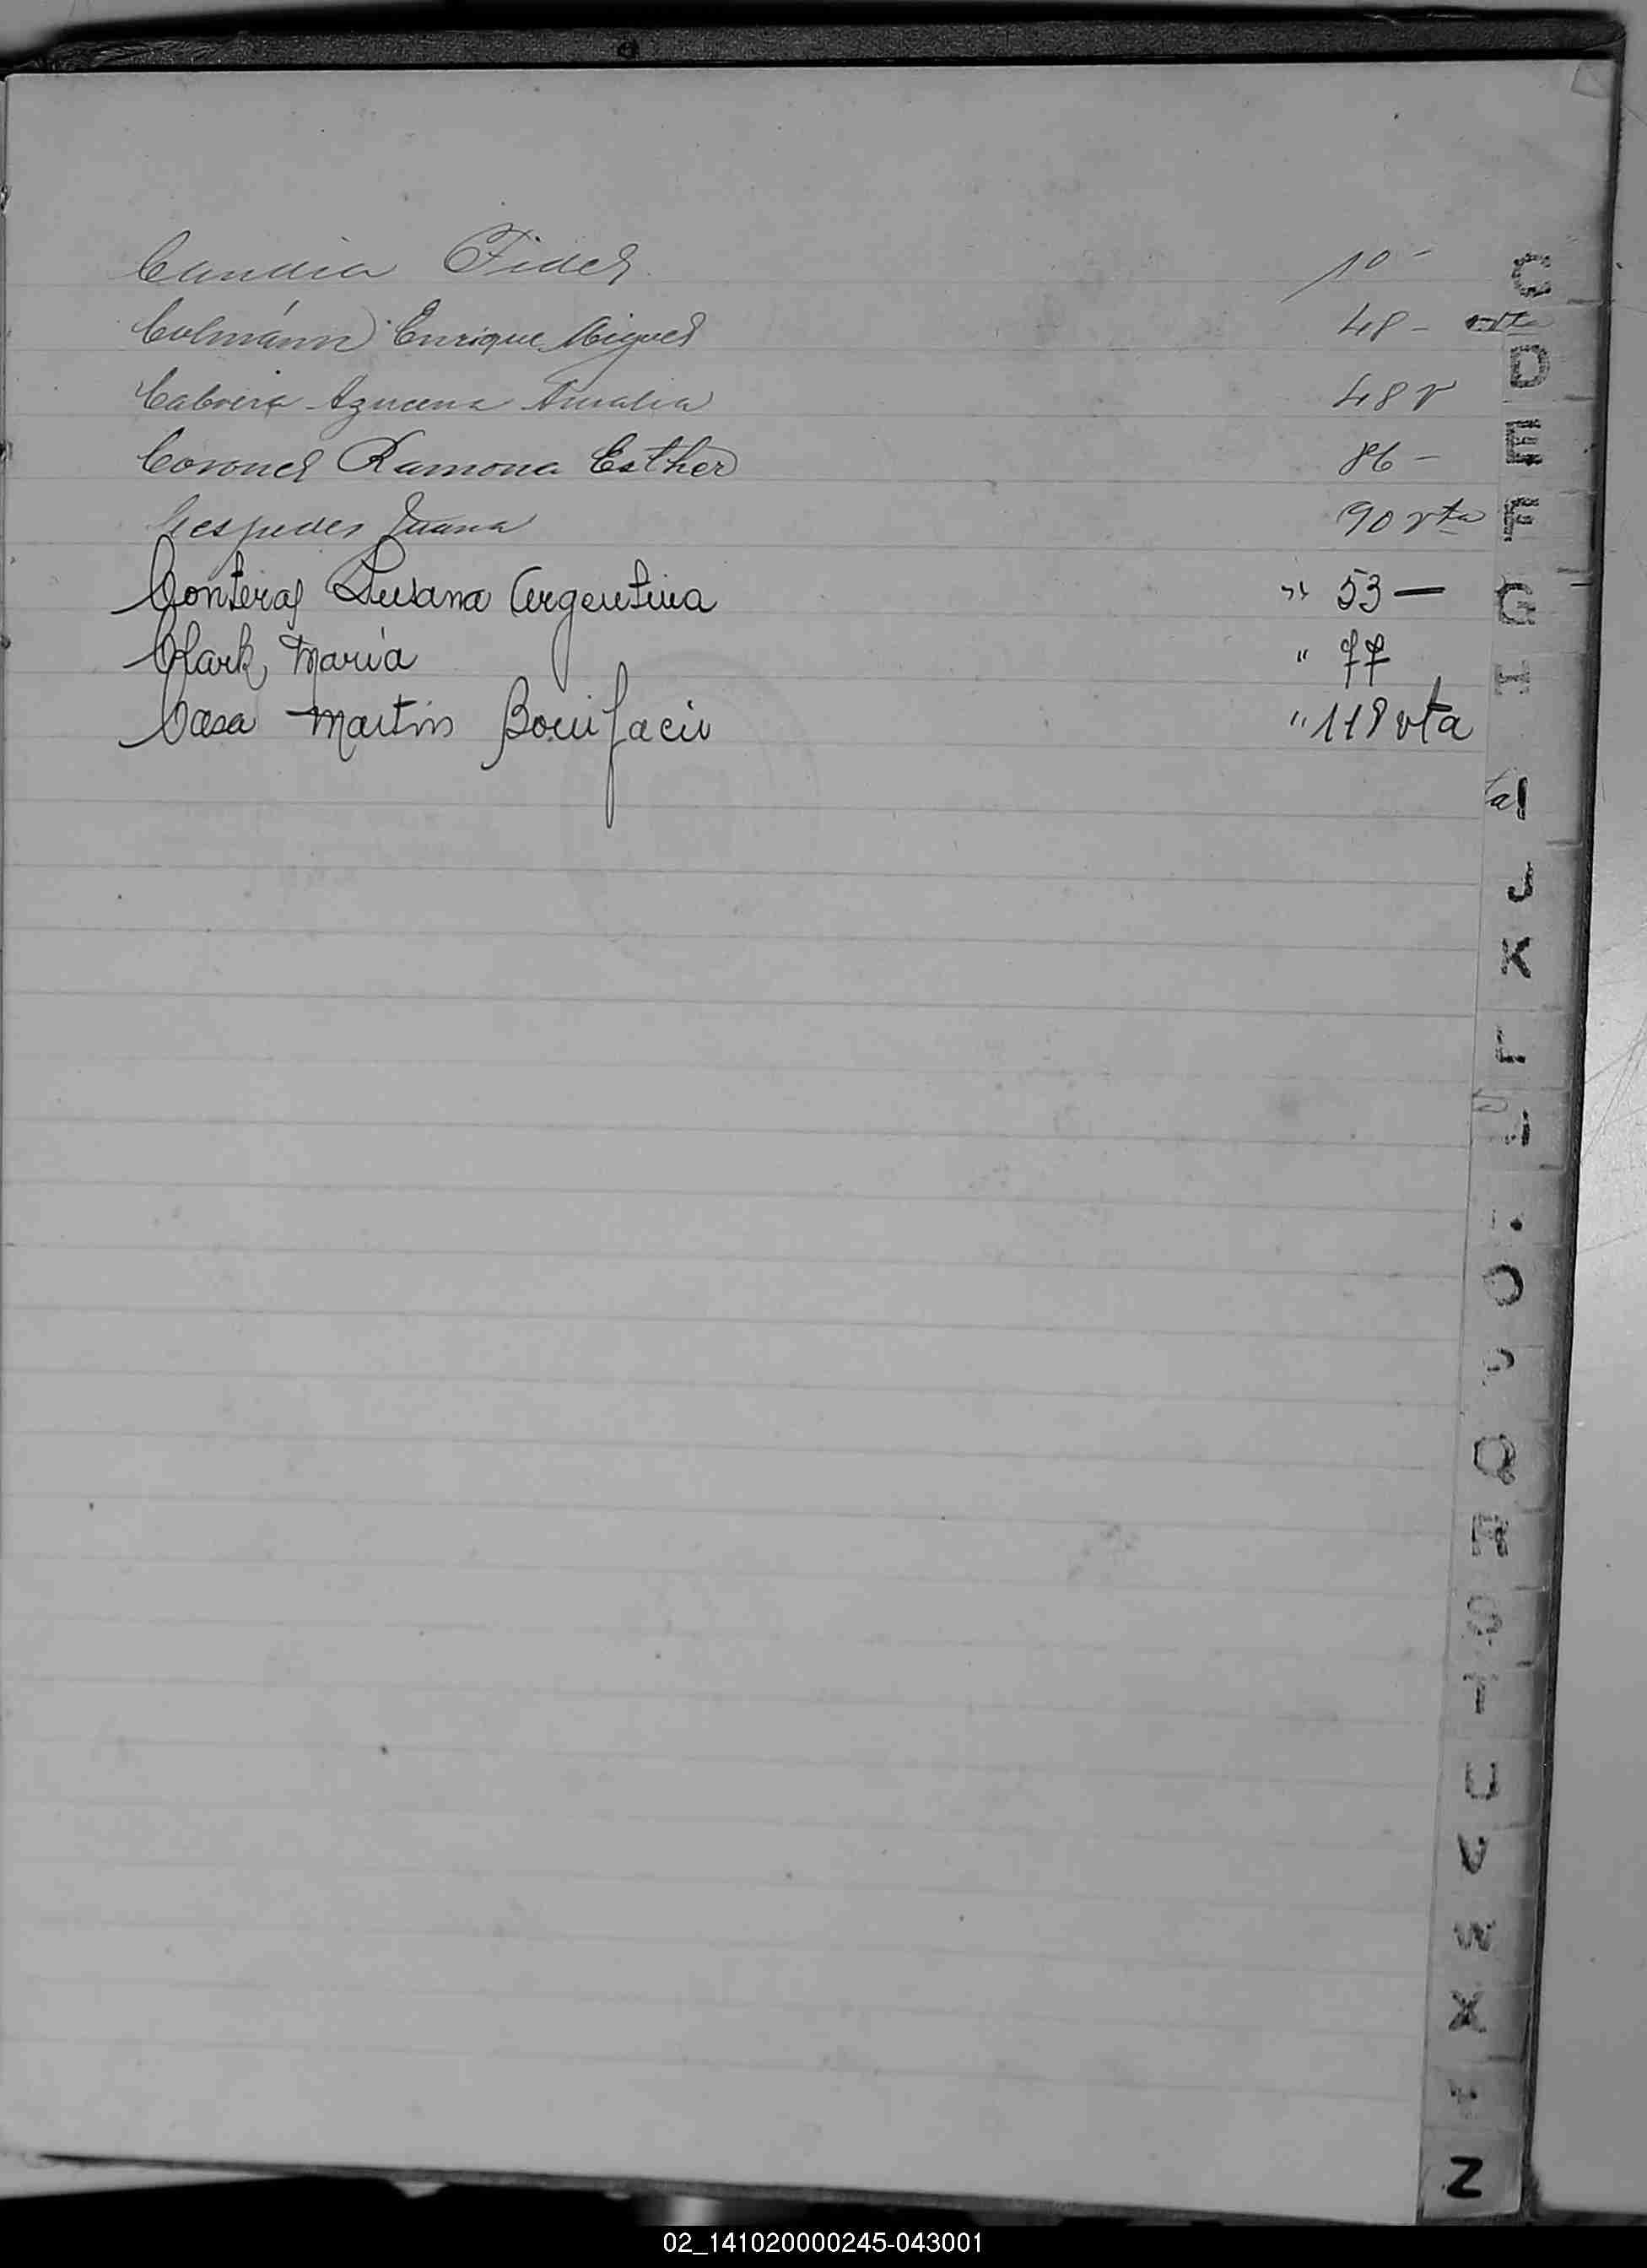 Candia Fidel 10 -
Colmánn Enrique Miguel 48 - vta
Cabrera Azucena Amalia 48 v
Coronel Ramona Esther 86 -
Cespedes Juana 90 vta
Conteras Susana Argentina " 53 —
Clark, María " 77
Casa Martin Bonifacio " 118 vta
C
D
E
F
G
H
I
J
K
L
O
Q
R
S
T
U
V
W
X
Y
Z
02_141020000245-043001